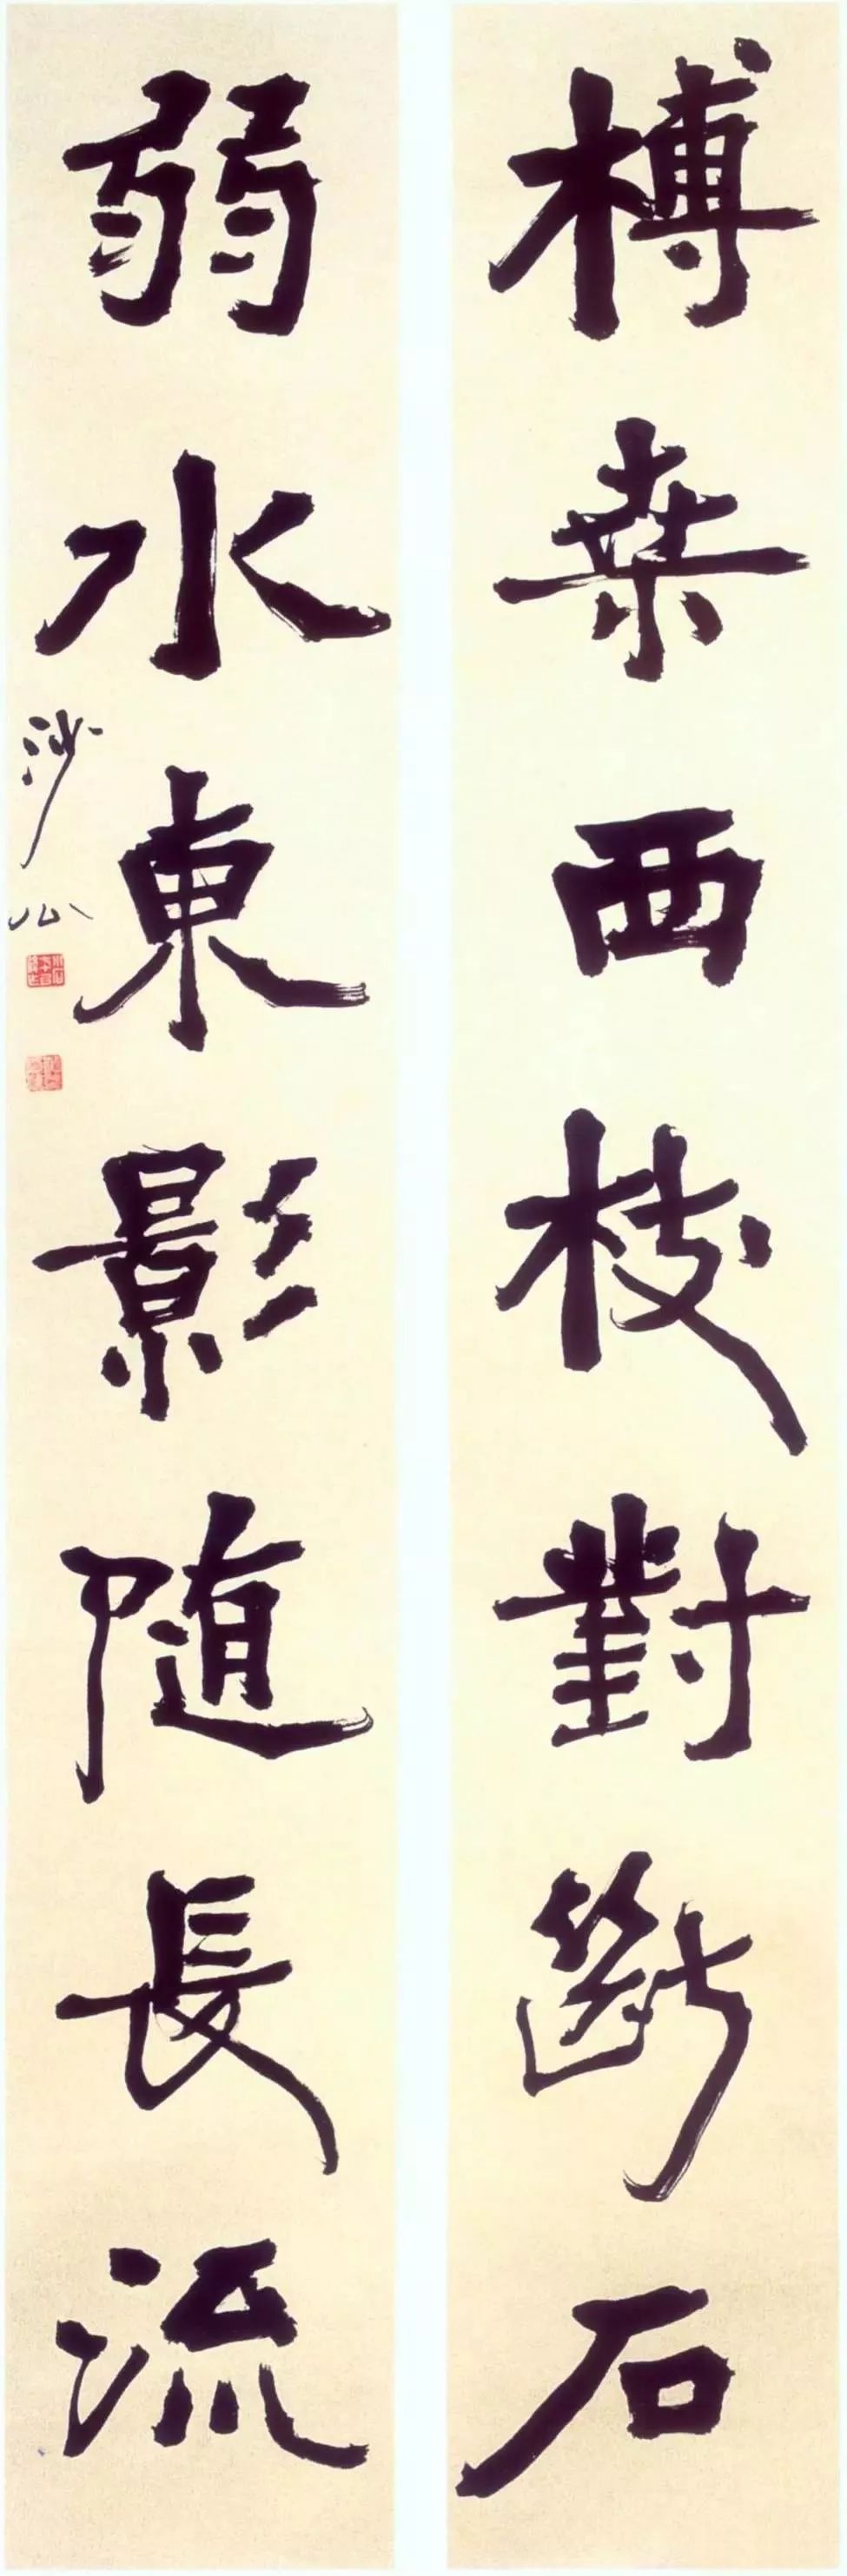 榑桑西枝對斷石
弱水東影随長流
沙公